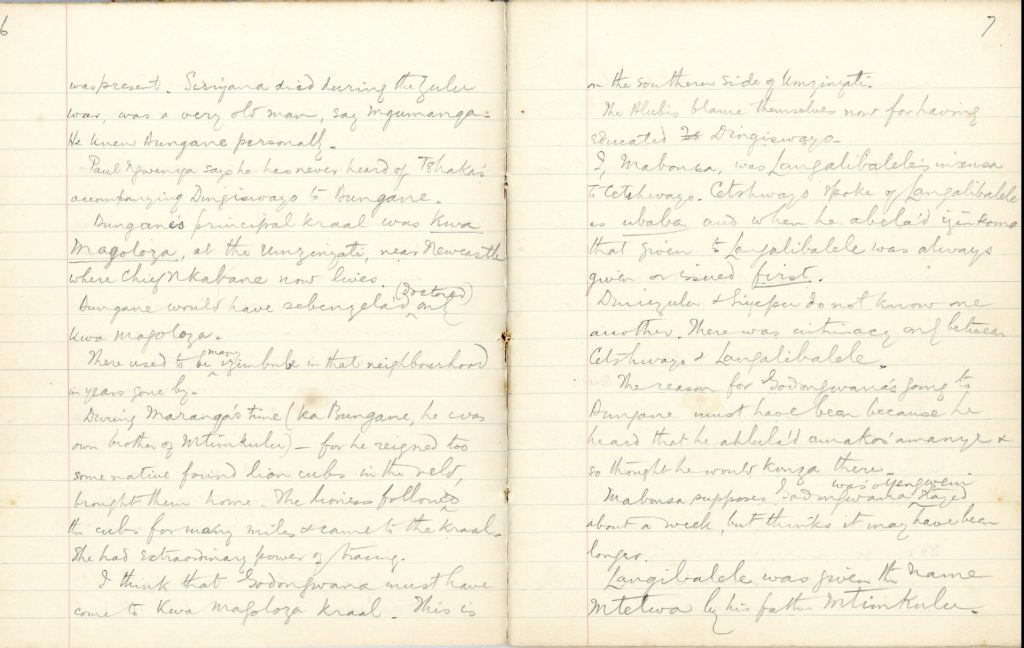 6
was present. Sisiyana died during the Zulu
war, was a very old man, say Mqumanga.
He knew Bungane personally.
Paul Ngwenya says he has never heard of Tshaka's
accompanying Dingiswayo to Bungane.
Bungane's principal kraal was Kwa
Magoloza, at the Umzinyati, near Newcastle
where Chief Nkabane now lives.
Bungane would have sebenzela'd (doctored) only
Kwa Magoloza.
There used to be many izimbube in that neighbourhood
in years gone by.
During Maranga's time (ka Bungane, he was
own brother of Mtimkulu) - for he reigned too
some native found lion cubs in the veld,
brought them home. The lioness followed
the cubs for many miles & came to the kraal.
She had extraordinary power of tracing.
I think that Godongwana must have
come to Kwa Magoloza kraal. This is
7
on the southern side of Umzinyati.
The Hlubis blame themselves now for having
educated Dingiswayo.
I, Mabonsa, was Langalibalele's inxusa
to Cetshwayo. Cetshwayo spoke of Langalibalele
as ubaba and when he abela'd izinkomo
that given to Langalibalele was always
given or issued first.
Dinizulu & Siyepu do not know one
another. There was intimacy only between
Cetshwayo & Langalibalele.
The reason for Godongwana's going to
Bungane must have been because he
heard that he ahlula'd amakosi amanye &
so thought he would konza there.
Mabonsa supposes Godongwana stayed
about a week, but thinks it may have been
longer.
Langibalele was given the name
Mtetwa by his father Mtimkulu.